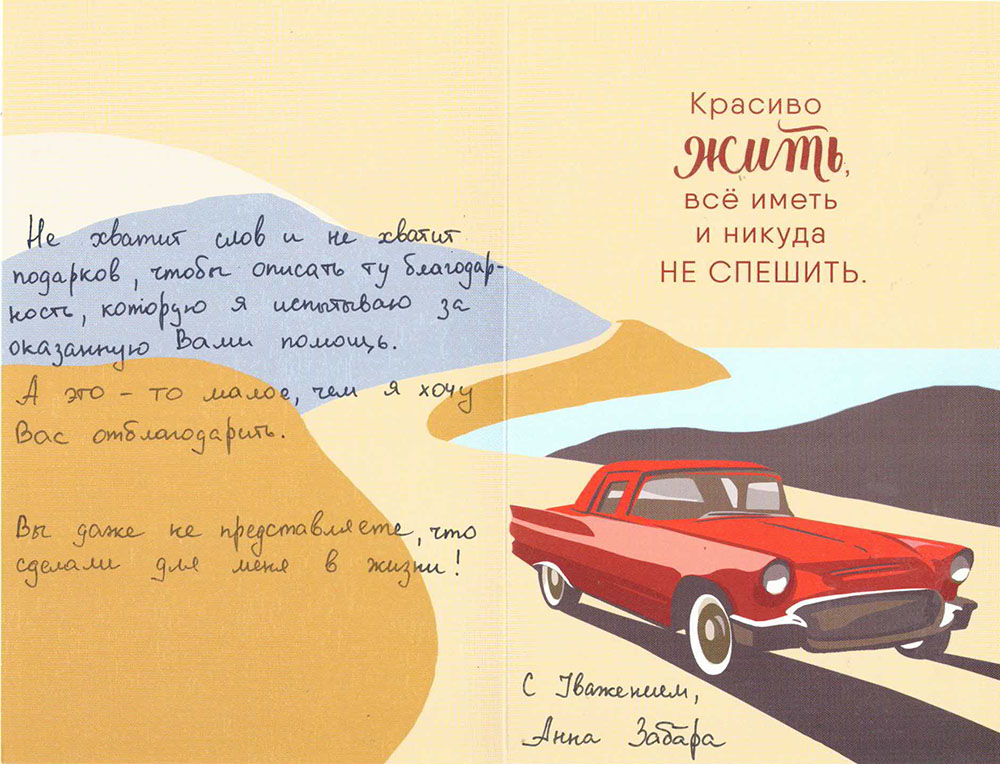 Не хватит слов и не хватит
подарков, чтобы описать ту благодар-
ность, которую я испытываю за
оказанную Вами помощь.
А это - то малое, чем я хочу
Вас отблагодарить.
Вы даже не представляете, что
сделали для меня в жизни!
Красиво
жить,
всё иметь
и никуда
НЕ СПЕШИТЬ.
С Уважением,
Анна Забара